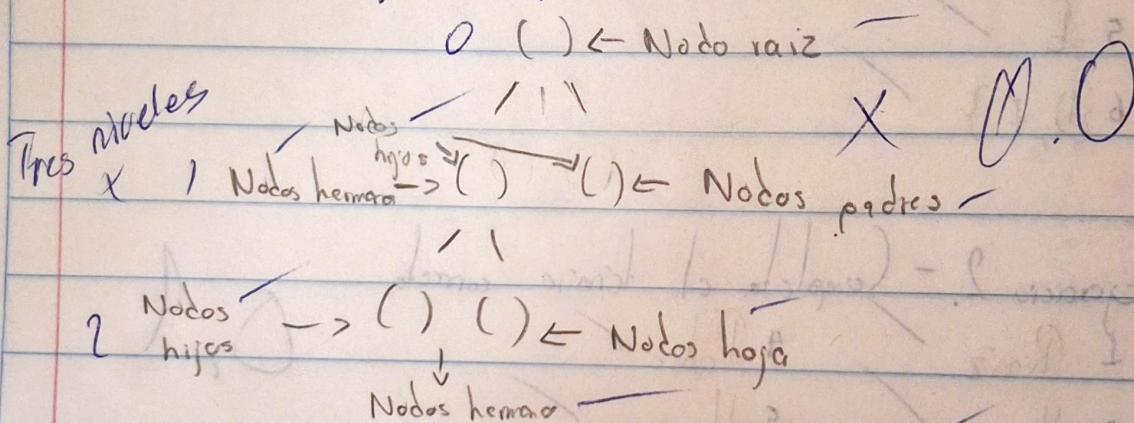 0 ( ) ← Nodo raiz
/ | \
Tres niveles
Nodos
hijos
x 1 Nodos hermano → ( ) ( ) ← Nodos padres
x 0.0
/ \
2 Nodos
hijos → ( ) ( ) ← Nodos hoja
↓
Nodos hermano